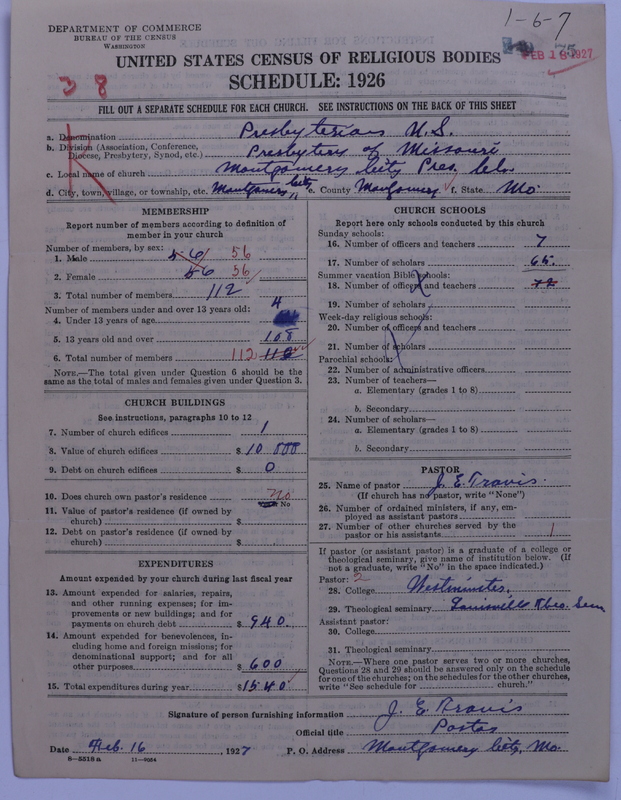 1-6-7
DEPARTMENT OF COMMERCE
BUREAU OF THE CENSUS
WASHINGTON
FEB 18 1927
UNITED STATES CENSUS OF RELIGIOUS BODIES
SCHEDULE: 1926
38
FILL OUT A SEPARATE SCHEDULE FOR EACH CHURCH. SEE INSTRUCTIONS ON THE BACK OF THIS SHEET
a. Denomination Presbyterian U.S.
b. Division (Association, Conference, Diocese, Presbytery, Synod, etc.) Presbytery of Missouri
c. Local name of church Montgomery City Pres. Ch.
d. City, town, village, or township, etc. Montgomery City e. County Montgomery f. State Mo.
MEMBERSHIP
Report number of members according to definition of
member in your church
Number of members, by sex:
1. Male 56 56
2. Female 56 56
3. Total number of members 112
Number of members under and over 13 years old:
4. Under 13 years of age 4
5. 13 years old and over 108
6. Total number of members 112 112
NOTE.—The total given under Question 6 should be
same as the total of males and females given under Question 3.
CHURCH BUILDINGS
See instructions, paragraphs 10 to 12
7. Number of church edifices 1
8. Value of church edifices $ 10 000
9. Debt on church edifices $ 0
10. Does church own pastor's residence No
No
11. Value of pastor's residence (if owned by
church) $
12. Debt on pastor's residence (if owned by
church) $
EXPENDITURES
Amount expended by your church during last fiscal year
13. Amount expended for salaries, repairs,
and other running expenses; for im-
provements or new buildings; and for
payments on church debt $ 940.
14. Amount expended for benevolences, in-
cluding home and foreign missions; for
denominational support; and for all
other purposes $ 600
15. Total expenditures during year $ 1540
CHURCH SCHOOLS
Report here only schools conducted by this church
Sunday schools:
16. Number of officers and teachers 7
17. Number of scholars 65.
Summer vacation Bible schools:
18. Number of officers and teachers 72
19. Number of scholars
Week-day religious schools:
20. Number of officers and teachers
21. Number of scholars
Parochial schools:
22. Number of administrative officers
23. Number of teachers—
a. Elementary (grades 1 to 8)
b. Secondary
24. Number of scholars—
a. Elementary (grades 1 to 8)
b. Secondary
PASTOR
25. Name of pastor J. E. Travis.
(If church has no pastor, write "None")
26. Number of ordained ministers, if any, em-
ployed as assistant pastors
27. Number of other churches served by the
pastor or his assistants 1
If pastor (or assistant pastor) is a graduate of a college or
theological seminary, give name of institution below. (If
not a graduate, write "No" in the space indicated.)
Pastor: 2
28. College Westminster.
29. Theological seminary Louisville Theo. Sem
Assistant pastor:
30. College
31. Theological seminary
NOTE.—Where one pastor serves two or more churches,
Questions 28 and 29 should be answered only on the schedule
for one of the churches; on the schedules for the other churches,
write "See schedule for church."
Signature of person furnishing information J. E. Travis
Official title Pastor
Date Feb. 16, 1927 P. O. Address Montgomery City, Mo.
8—5518 a 11—9034